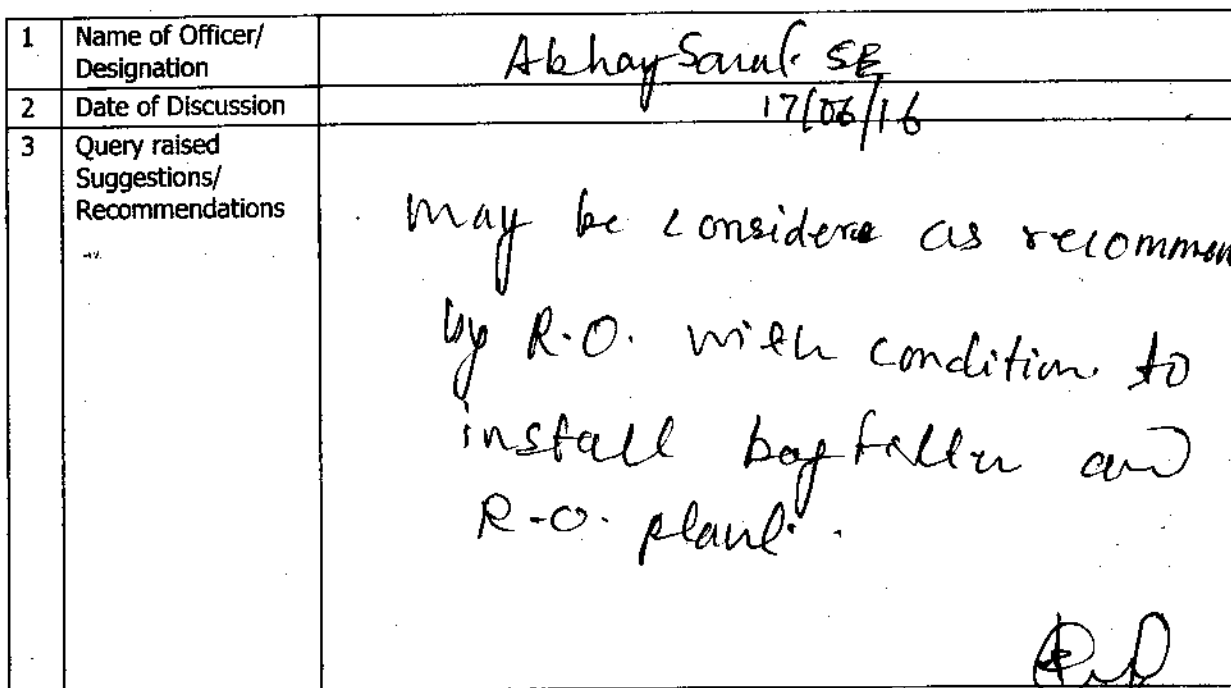 1 Name of Officer/ Designation Abhay Saraf SE
2 Date of Discussion 17/06/16
3 Query raised Suggestions/ Recommendations
may be considere as recommen
by R.O. with condition to
install bagfilter and
R.O. plant.